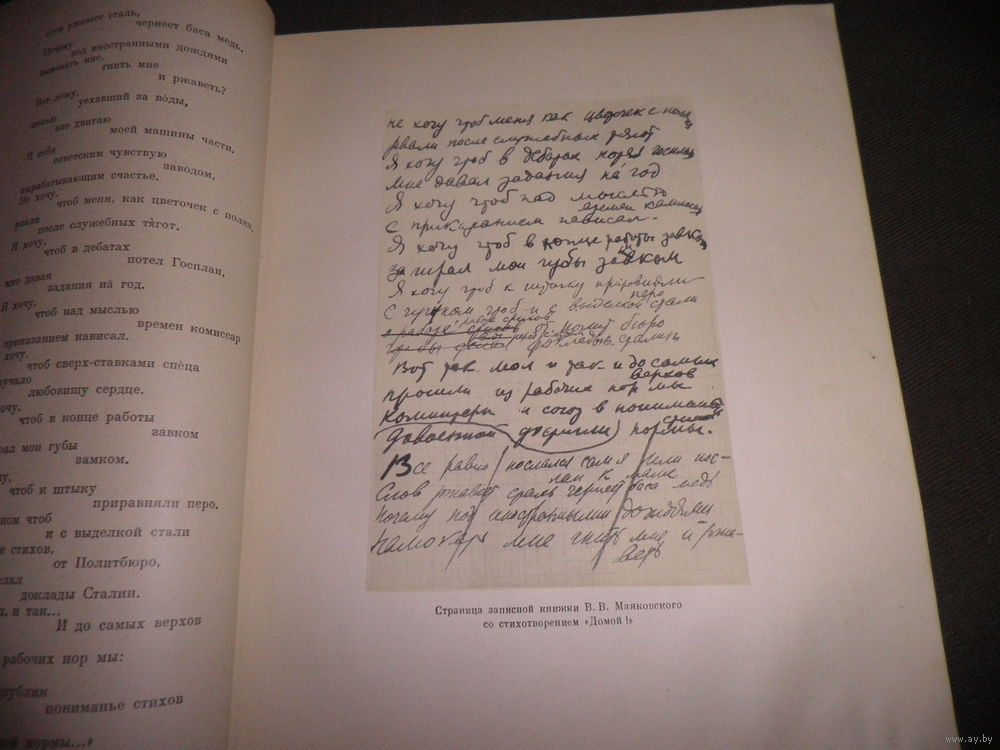 слов ржавеет сталь,
чернеет баса медь.
Почему
под иностранными дождями
вымокать мне,
гнить мне
и ржаветь?
Вот лежу,
уехавший за во́ды,
ленью
еле двигаю
моей машины части.
Я себя
советским чувствую
заводом,
вырабатывающим счастье.
Не хочу,
чтоб меня, как цветочек с полян,
рвали
после служебных тя́гот.
Я хочу,
чтоб в дебатах
потел Госплан,
мне давая
задания на́ год.
Я хочу,
чтоб над мыслью
времен комиссар
приказанием нависал.
хочу,
чтоб сверх-ставками спе́ца
лучало
любовищу сердце.
хочу,
чтоб в конце работы
завком
рал мои губы
замком.
у,
чтоб к штыку
приравняли перо.
ном чтоб
и с выделкой стали
е стихов,
от Политбюро,
лал
доклады Сталин.
л, и так...
И до самых верхов
рабочих нор мы:
публик
пониманье стихов
ой нормы...»
не хочу чтоб меня как цветочек с полян
рвали после служебных тягот
Я хочу чтоб в дебатах потел госплан
мне давал задания на́ год
Я хочу чтоб над мыслью
времен комиссар
с приказанием нависал.
Я хочу чтоб в конце работы завком
запирал мои губы замком
Я хочу чтоб к штыку приравняли
перо
с чугуном чтоб и с выделкой стали
о работе стихов
от полит бюро
чтобы делал
Вот так мол и так и до самых
верхов
прошли из рабочих нор мы
и союз в понимании
стихов
довоенной нормы.
Все равно послался сам я или пос-
лан к маме
Слов ржавеет сталь чернеет баса медь
Почему под иностранными дождями
намокать мне гнить мне и ржа-
веть
Страница записной книжки В. В. Маяковского
со стихотворением «Домой!»
www.ay.by